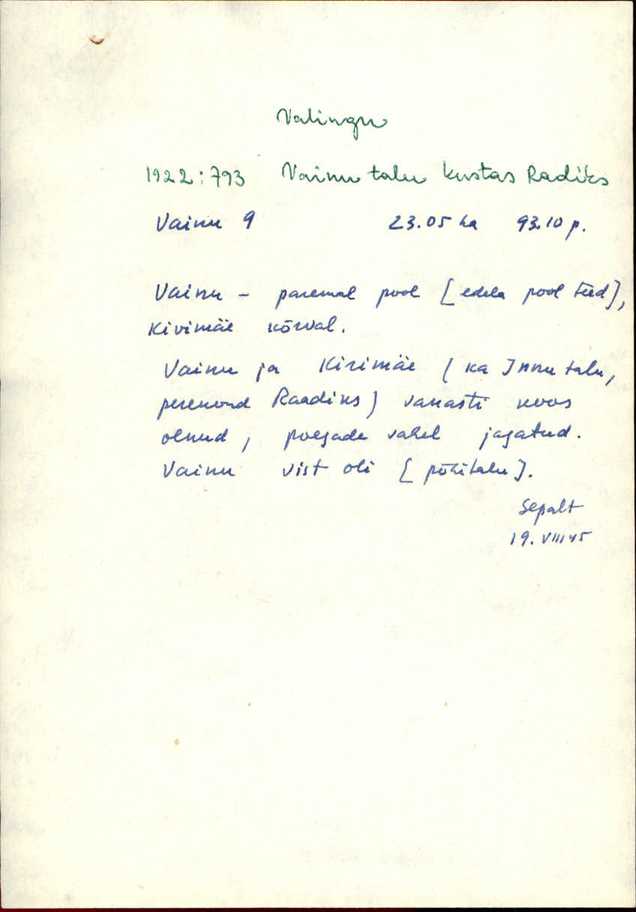 Valingu
1922:793 Vainu talu Kustas Radiks
Vainu 9 23.05 ha 93.10 p.
Vainu – paremal pool [edela pool teed],
Kivimäe kõrval.
Vainu ja Kivimäe (ka Innu talu,
perekond Raadiks) vanasti koos
olnud, poegade vahel jagatud.
Vainu vist oli [põlitalu].
Sepalt
19. VIII 45